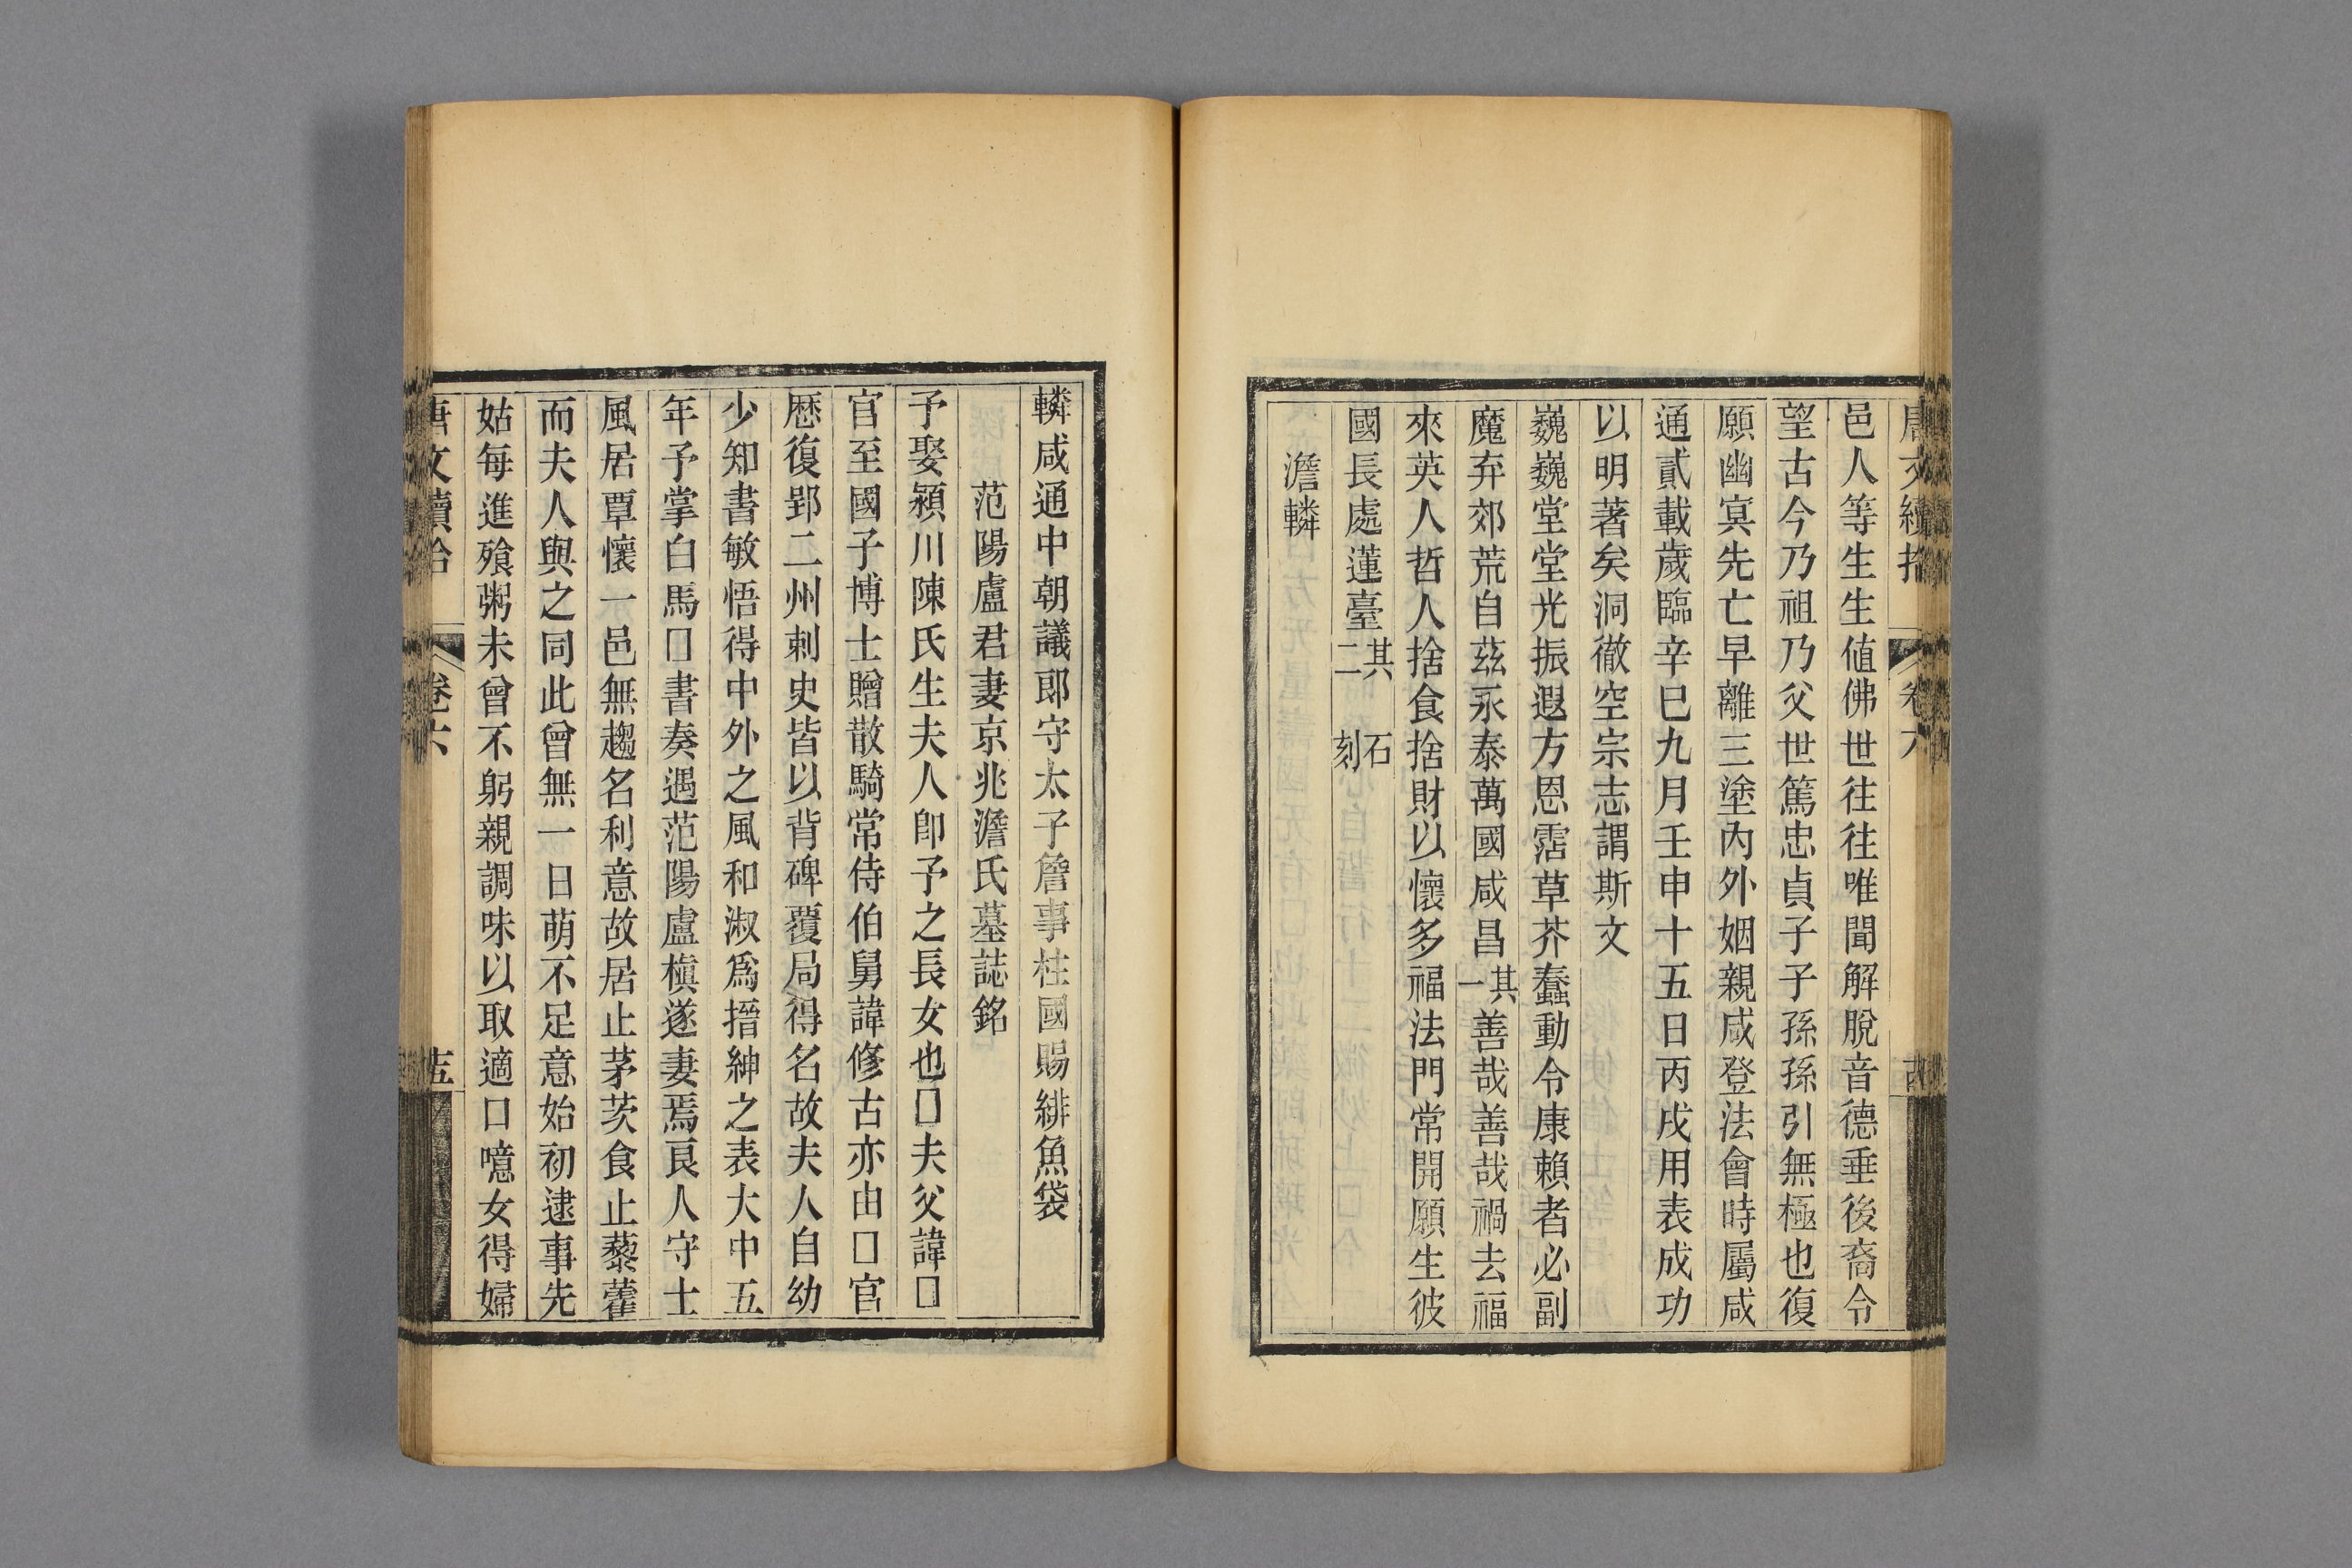 邑人等生生値佛世往往唯聞解脫音德垂後裔令
望古今乃祖乃父世篤忠貞子子孫孫引無極也復
願幽冥先亡早離三塗內外姻親咸登法會時屬咸
通貳載歲臨辛巳九月壬申十五日丙戌用表成功
以明著矣洞徹空宗志謂斯文
巍巍堂堂光振遐方恩霑草芥蠢動令康賴者必副
魔弃郊荒自茲永泰萬國咸昌其一善哉善哉禍去福
來英人哲人捨食捨財以懷多福法門常開願生彼
國長處蓮臺其二 石刻
澹轔
轔咸通中朝議郎守太子詹事柱國賜緋魚袋
范陽盧君妻京兆澹氏墓誌銘
予娶潁川陳氏生夫人卽予之長女也□夫父諱□
官至國子博士贈散騎常侍伯舅諱修古亦由□官
歷復郢二州刺史皆以背碑覆局得名故夫人自幼
少知書敏悟得中外之風和淑爲搢紳之表大中五
年予掌白馬□書奏遇范陽盧槙遂妻焉良人守士
風居覃懷一邑無趨名利意故居止茅茨食止藜藿
而夫人與之同此曾無一日萌不足意始初逮事先
姑每進飱粥未曾不躬親調味以取適口噫女得婦
唐文續拾 卷六 十五